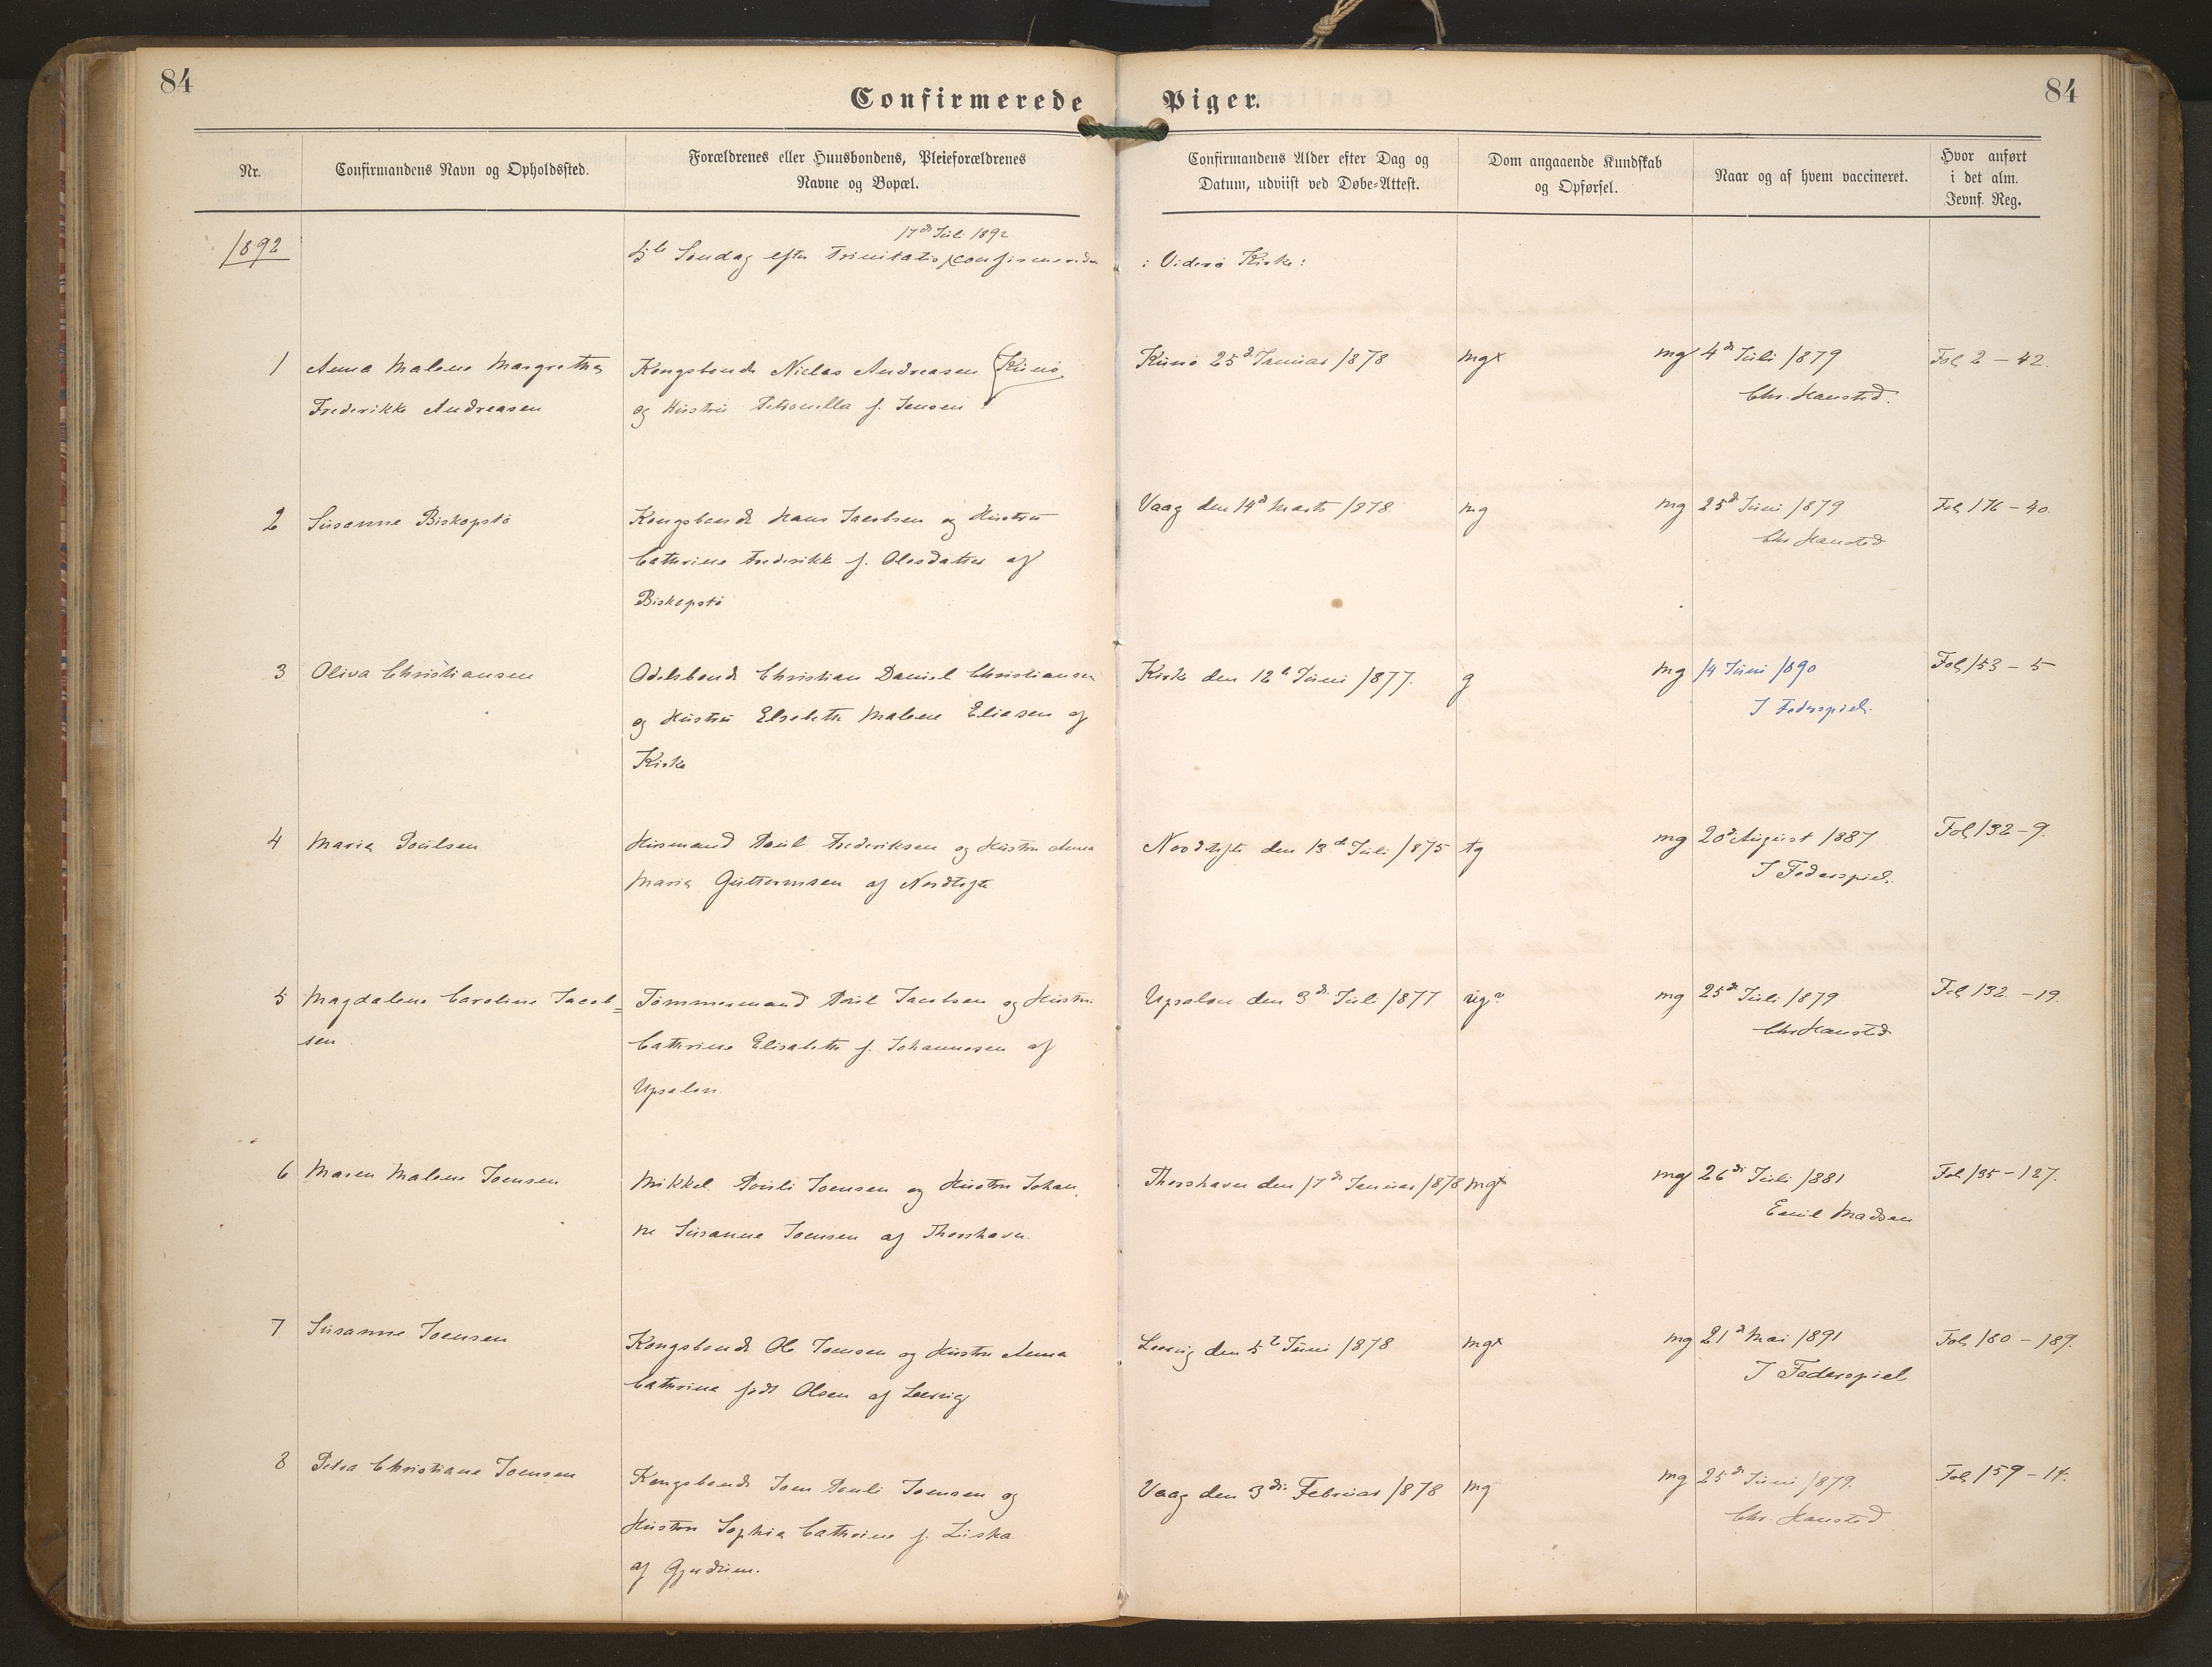 84
Confirmerede Piger.
84
Nr.
Confirmandens Navn og Opholdssted.
Forældrenes eller Huusbondens, Pleieforældrenes
Navne og Bopæl.
Confirmandens Alder efter Dag og
Datum, udviist ved Døbe-Attest.
Dom angaaende Kundskab
og Opførsel.
Naar og af hvem vaccineret.
Hvor anført
i det alm.
Jevnf. Reg.
1892
17de Juli 1892
5te Søndag efter Trinitatis confirmereden
i Viderø Kirke:
1 Anna Malene Margrethe
Frederikke Andreasen
Kongsbonde Niclas Andreasen
og Hustru Petronella f. Jensen
Kunø
Kunø 25d Januar 1878
mgx
mg
4de Juli 1879
Chr. Hansted.
Fol 2 - 42.
2 Susanne Biskopstø
Kongsbonde Hans Jacobsen og Hustru
Cathrine Frederikke f. Olesdatter af
Biskopstø
Vaag den 14d Marts 1878
mg
mg
25d Juni 1879
Chr Hansted
Fol 176 - 40
3 Oliva Christiansen
Odelsbonde Christian Daniel Christiansen
og Hustru Elsebeth Malene Eliasen af
Kirke
Kirke den 12te Juni 1877.
g
mg
14 Juni 1890
J Federspiel.
Fol 153 - 5
4 Maria Poulsen
Husmand Poul Frederiksen og Hustru Anna
Maria Guttormsen af Nordtofte
Nordtofte den 13de Juli 1875
tg
mg
20d August 1887
J Federspiel.
Fol 132 - 9.
5 Magdalena Caroline Jacob=
sen
Tømmermand Poul Jacobsen og Hustru
Cathrine Elisabeth f. Johannesen af
Upsalen.
Upsalen den 3de Juli 1877
ug?
mg
25de Juli 1879
Chr Hansted
Fol 132. - 19.
6 Maren Malene Joensen
Mikkel Pouli Joensen og Hustru Johan
ne Susanne Joensen af Thorshavn.
Thorshavn den 17de Januar 1878
mgx
mg
26de Juli 1881
Emil Madsen
Fol 195 - 127.
7 Susanne Joensen
Kongsbonde Ole Joensen og Hustru Anna
Cathrina født Olsen af Leervig
Leervig den 5te Juni 1878
mgx
mg
21d Mai 1891
J Federspiel
Fol 160 - 189.
8 Petra Christiana Joensen
Kongsbonde Joen Pouli Joensen og
Hustru Sophia Cathrine f. Ziska
af Gjerdum.
Vaag den 3die Februar 1878
mg
mg
25de Juni 1879.
Chr. Hansted
Fol 159 - 14.